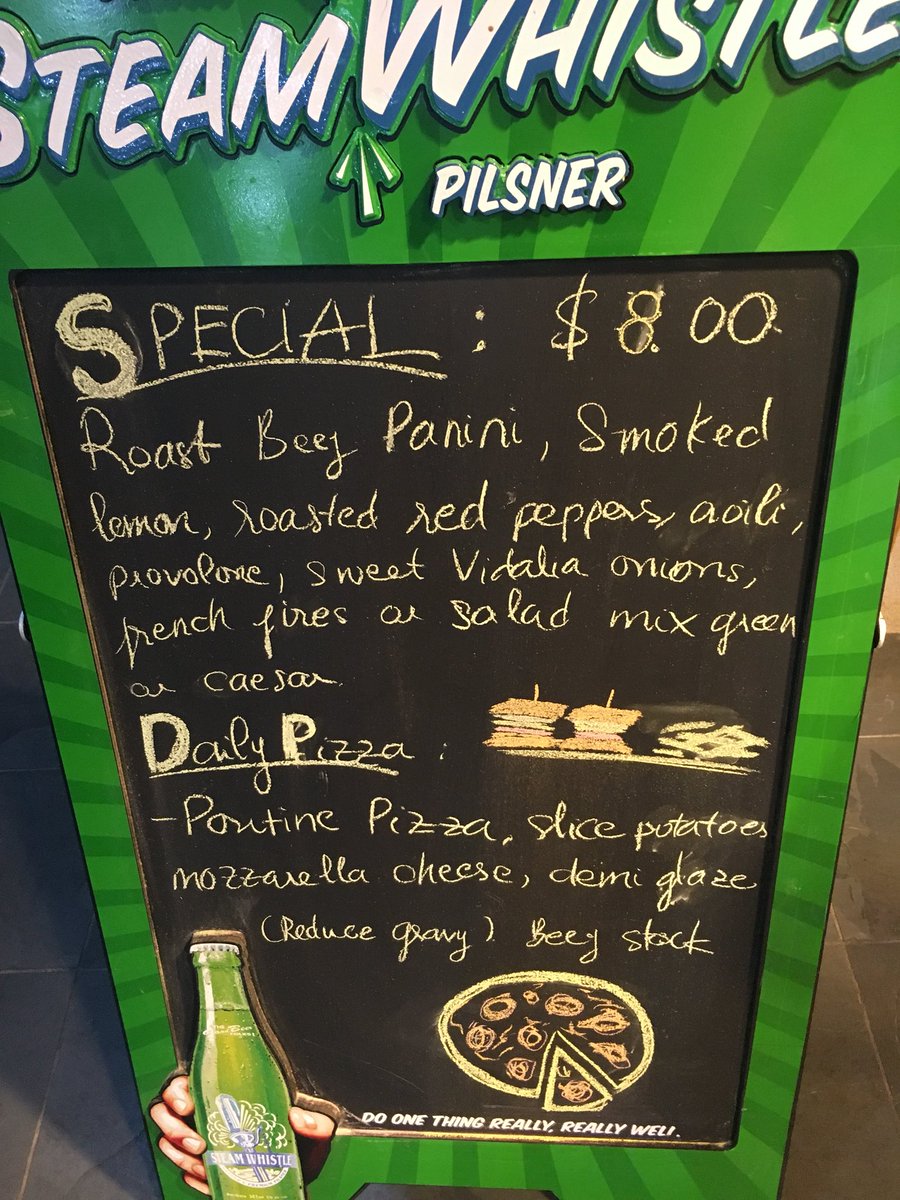 STEAM WHISTLE
PILSNER
SPECIAL : $ 8.00
Roast Beef Panini, Smoked
lemon, roasted red peppers, aoili,
provolone, sweet Vidalia onions,
french fires or salad mix green
or caesar
Daily Pizza :
- Poutine Pizza, slice potatoes
mozzarella cheese, demi glaze
(Reduce gravy) Beef stock
DO ONE THING REALLY, REALLY WELL.
STEAM WHISTLE